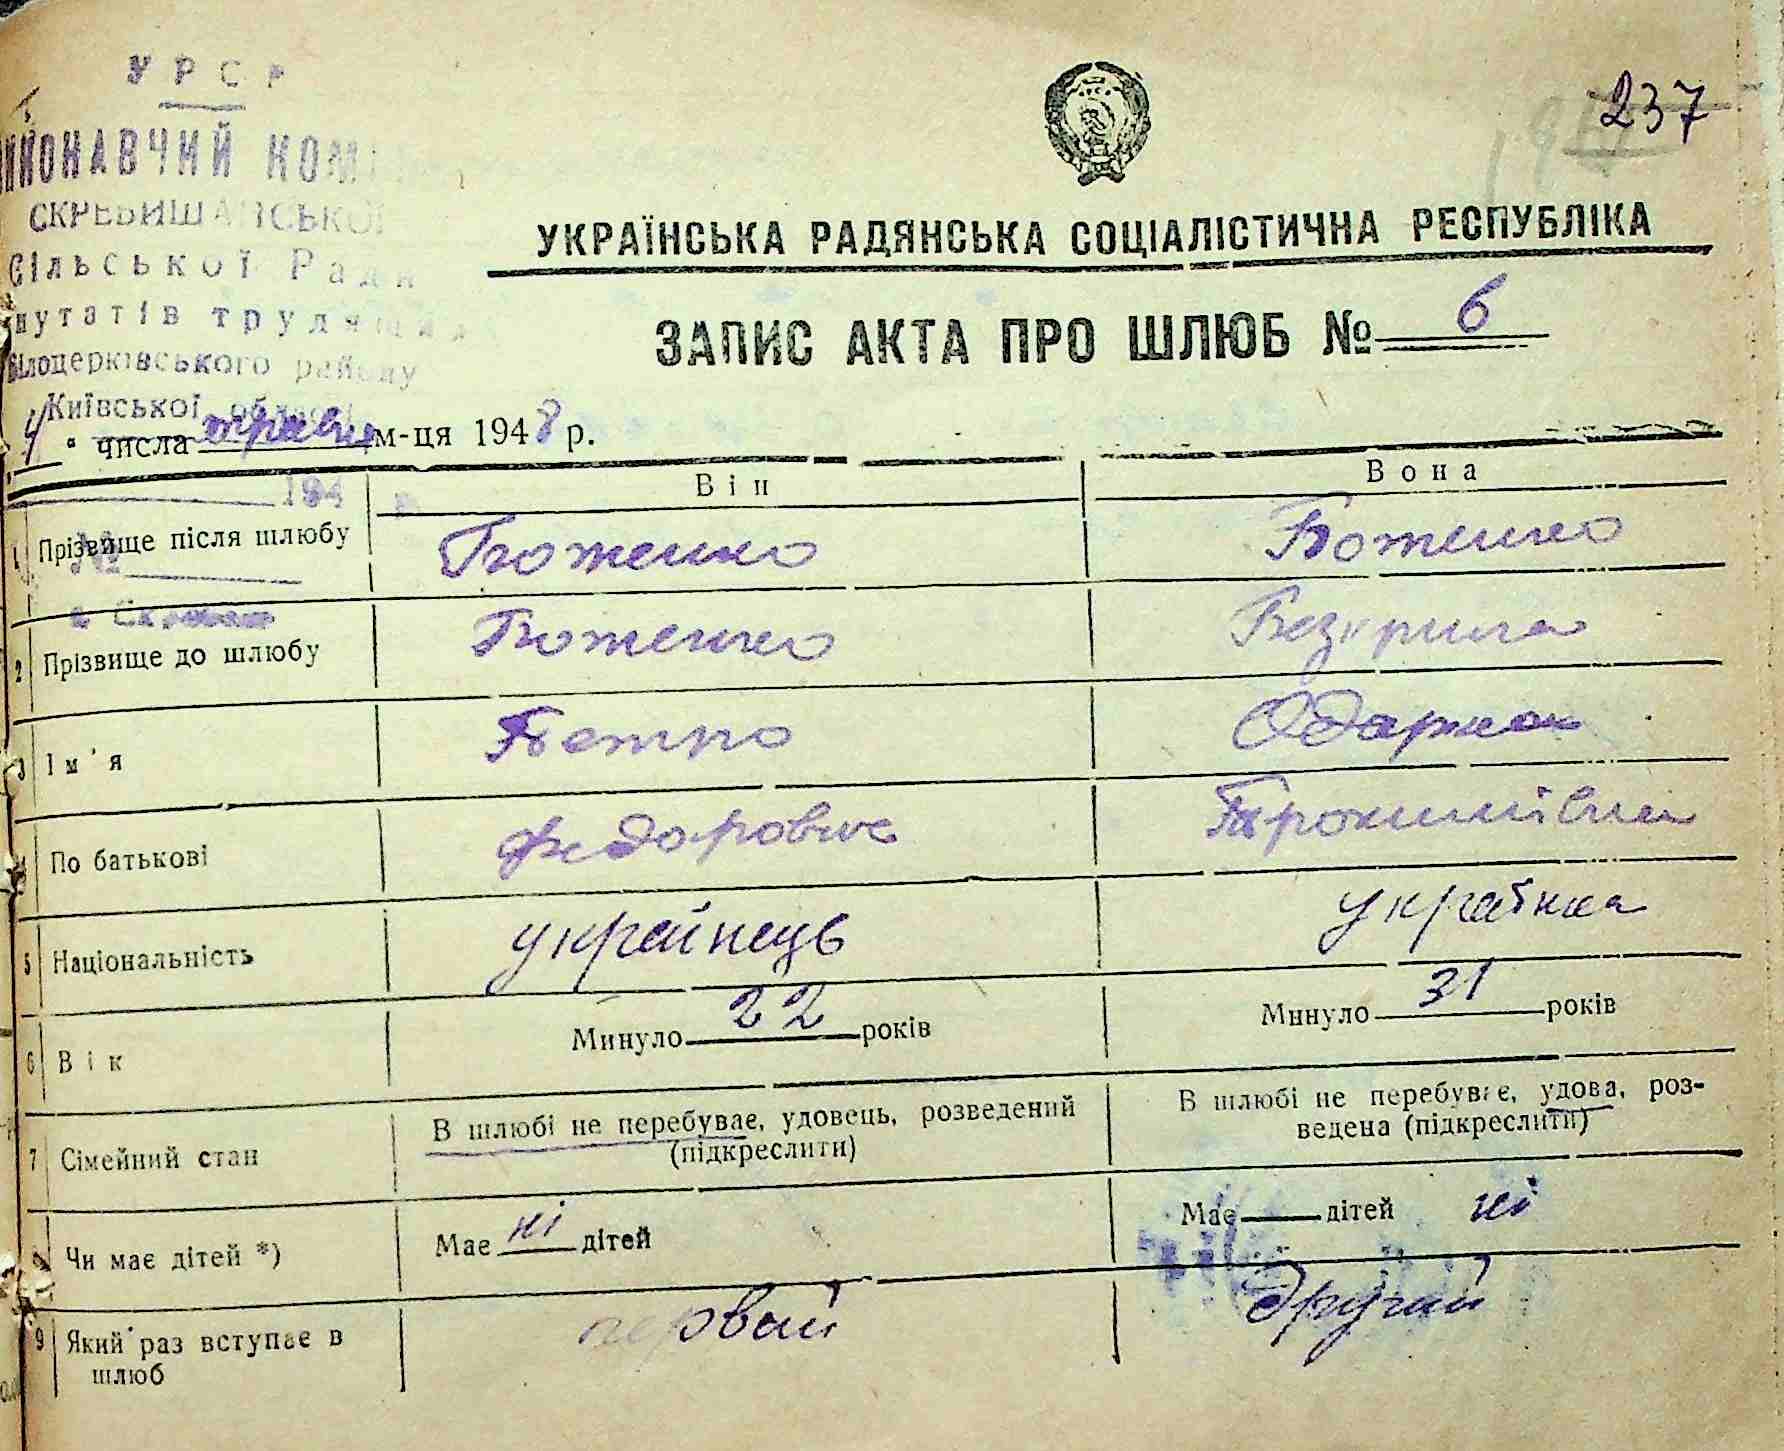 УРСР
ВИКОНАВЧИЙ КОМ
СКРЕБИШАНСЬКОЇ
Сільської Ради
путатів трудящих
Білоцерківського району
Київської області
237
УКРАЇНСЬКА РАДЯНСЬКА СОЦІАЛІСТИЧНА РЕСПУБЛІКА
ЗАПИС АКТА ПРО ШЛЮБ № 6
4 " числа травня м-ця 1948 р.
194 р.
Він Вона
1 Прізвище після шлюбу Боженко Боженко
№
2 Прізвище до шлюбу Боженко Безкрила
3 Ім'я Петро Одарка
4 По батькові Федорович Трохимівна
5 Національність українець українка
6 Вік Минуло 22 років Минуло 31 років
7 Сімейний стан В шлюбі не перебуває, удовець, розведений (підкреслити) В шлюбі не перебуває, удова, роз-
ведена (підкреслити)
8 Чи має дітей *) Має ні дітей Має дітей ні
9 Який раз вступає в шлюб первий другий